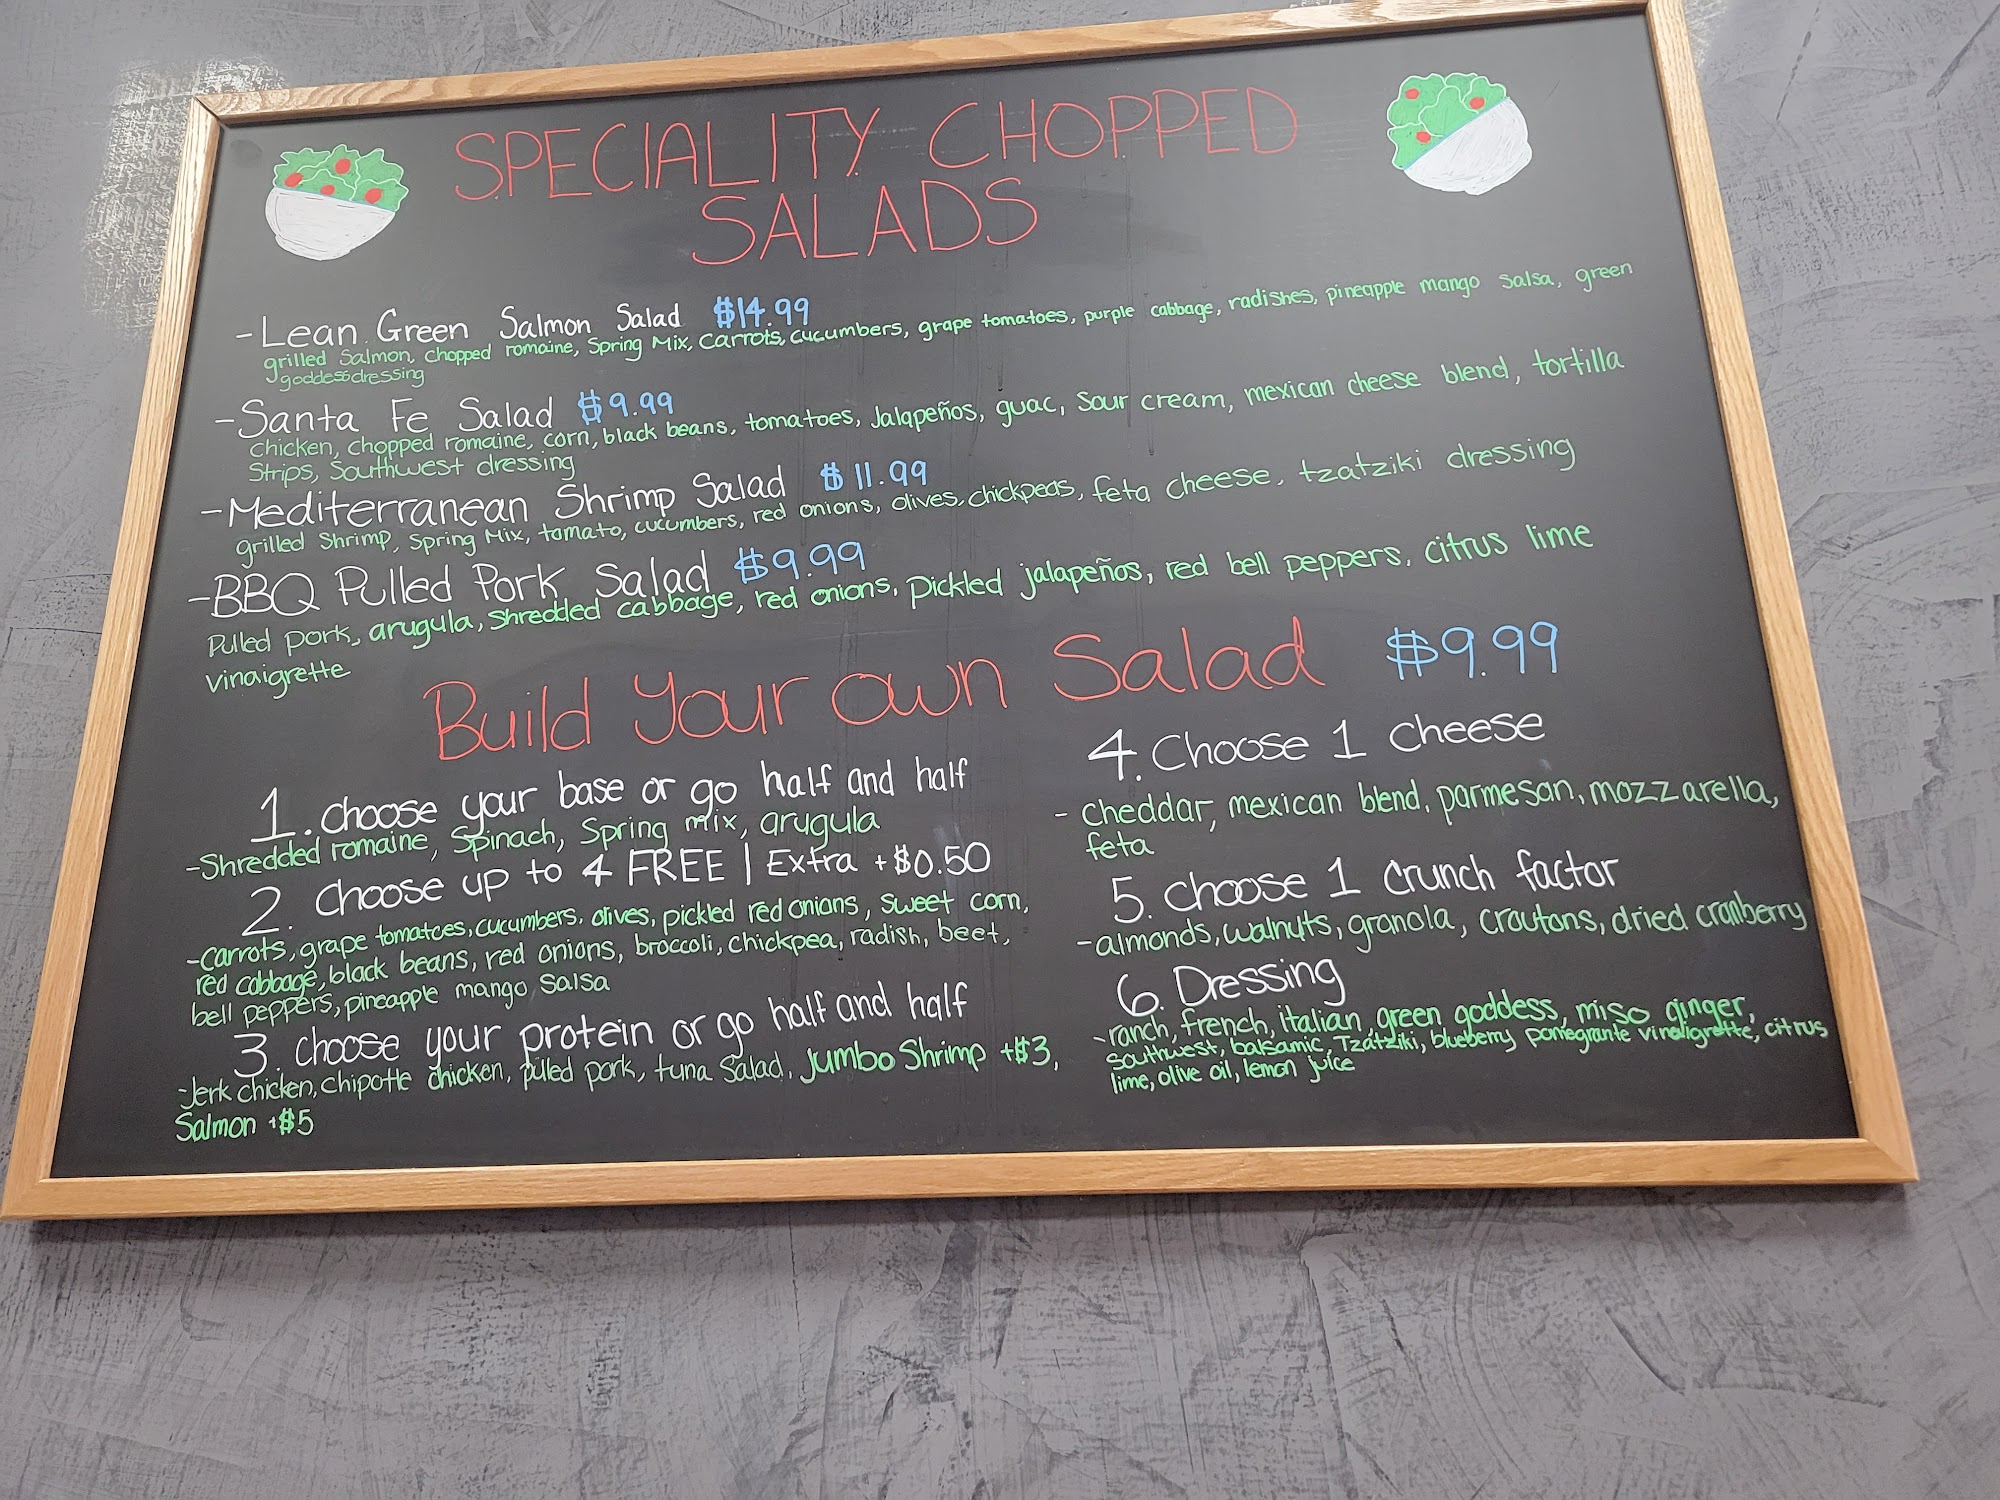 SPECIALITY CHOPPED
SALADS
-Lean Green Salmon Salad $14.99
grilled Salmon, chopped romaine, Spring Mix, Carrots, cucumbers, grape tomatoes, purple cabbage, radishes, pineapple mango salsa, green
goddess dressing
-Santa Fe Salad $9.99
chicken, chopped romaine, corn, black beans, tomatoes, Jalapeños, guac, Sour cream, mexican cheese blend, tortilla
Strips, Southwest dressing
-Mediterranean Shrimp Salad $11.99
grilled Shrimp, Spring Mix, tomato, cucumbers, red onions, olives, chickpeas, feta cheese, tzatziki dressing
-BBQ Pulled Pork Salad $9.99
Pulled pork, arugula, Shredded cabbage, red onions, Pickled jalapeños, red bell peppers, citrus lime
vinaigrette
Build Your own Salad $9.99
1. choose your base or go half and half
-Shredded romaine, Spinach, Spring mix, arugula
2. Choose up to 4 FREE | Extra +$0.50
-carrots, grape tomatoes, cucumbers, olives, pickled red onions, sweet corn,
red cabbage, black beans, red onions, broccoli, chickpea, radish, beet,
bell peppers, pineapple mango Salsa
3. choose your protein or go half and half
-Jerk chicken, chipotle chicken, pulled pork, tuna Salad, Jumbo Shrimp +$3,
Salmon +$5
4. Choose 1 cheese
- cheddar, mexican blend, parmesan, mozzarella,
feta
5. choose 1 crunch factor
-almonds, walnuts, granola, croutons, dried cranberry
6. Dressing
-ranch, french, italian, green goddess, miso ginger,
Southwest, balsamic, Tzatziki, blueberry pomegrante vinaigrette, citrus
lime, olive oil, lemon juice